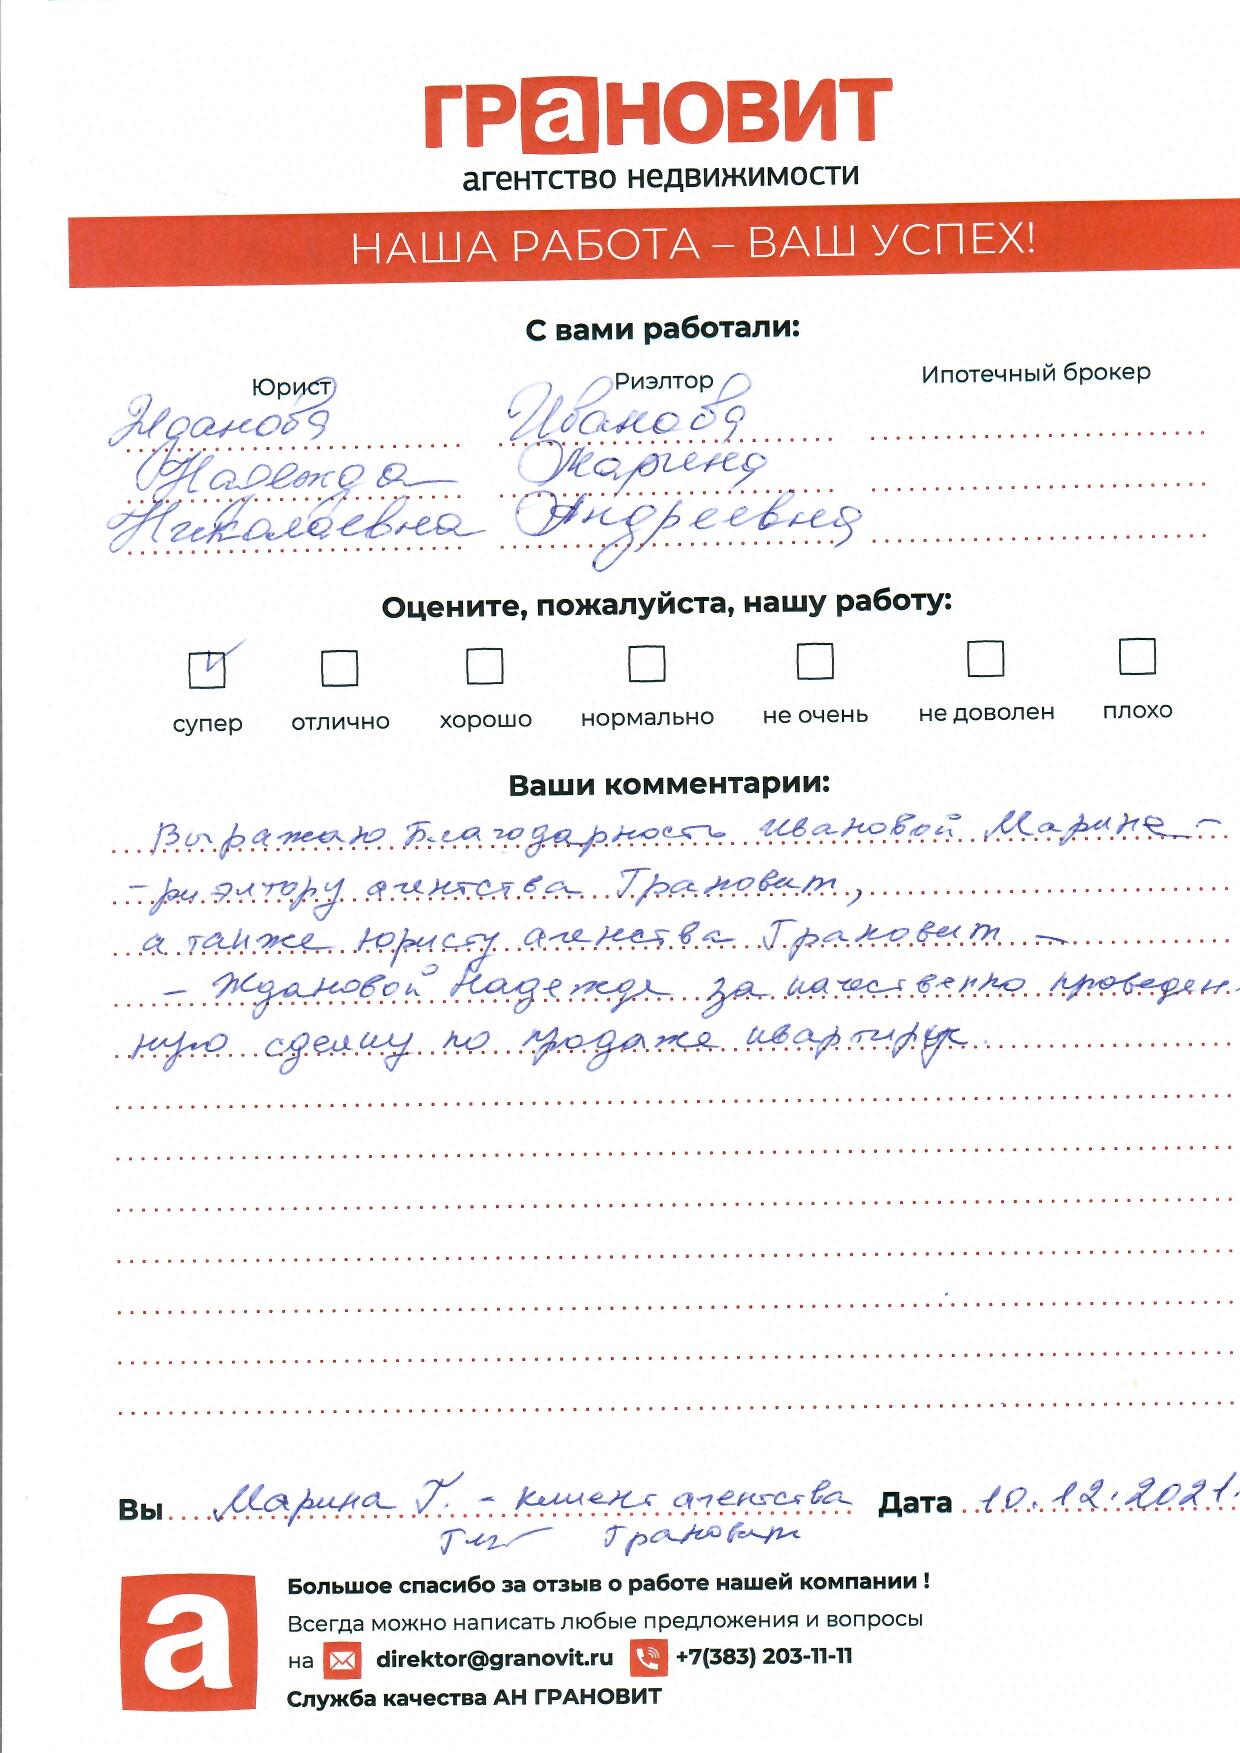 ГРаНОВИТ
агентство недвижимости
НАША РАБОТА – ВАШ УСПЕХ!
С вами работали:
Юрист Риэлтор Ипотечный брокер
Жданова Иванова
Надежда Марина
Николаевна Андреевна
Оцените, пожалуйста, нашу работу:
супер отлично хорошо нормально не очень не доволен плохо
Ваши комментарии:
Выражаю Благодарность Ивановой Марине -
- риэлтору агентства Грановит,
а также юристу агенства Грановит -
- Ждановой Надежде за качественно проведен
ную сделку по продаже квартиру
Вы Марина Г. - клиент агентства Дата 10.12.2021.
Грановит
а
Большое спасибо за отзыв о работе нашей компании !
Всегда можно написать любые предложения и вопросы
на direktor@granovit.ru +7(383) 203-11-11
Служба качества АН ГРАНОВИТ